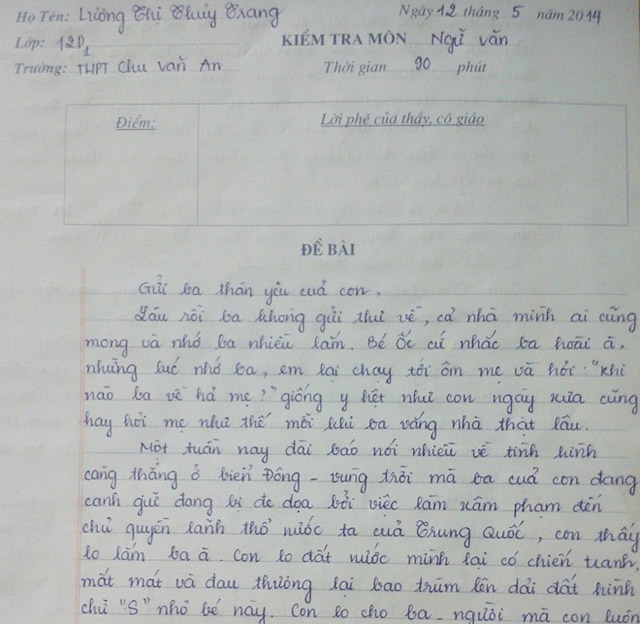 Họ Tên: Lương Thị Thùy Trang Ngày 12 tháng 5 năm 2014
Lớp: 12D1 KIỂM TRA MÔN Ngữ văn
Trường: THPT Chu Văn An Thời gian 90 phút
Điểm: Lời phê của thầy, cô giáo
ĐỀ BÀI
Gửi ba thân yêu của con,
Lâu rồi ba không gửi thư về, cả nhà mình ai cũng
mong và nhớ ba nhiều lắm. Bé Ốc cứ nhắc ba hoài à,
những lúc nhớ ba, em lại chạy tới ôm mẹ và hỏi: "khi
nào ba về hả mẹ?" giống y hệt như con ngày xưa cũng
hay hỏi mẹ như thế mỗi khi ba vắng nhà thật lâu.
Một tuần nay đài báo nói nhiều về tình hình
căng thẳng ở biển Đông - vùng trời mà ba của con đang
canh giữ đang bị đe dọa bởi việc làm xâm phạm đến
chủ quyền lãnh thổ nước ta của Trung Quốc, con thấy
lo lắm ba à. Con lo đất nước mình lại có chiến tranh,
mất mát và đau thương lại bao trùm lên dải đất hình
chữ "S" nhỏ bé này. Con lo cho ba - người mà con luôn